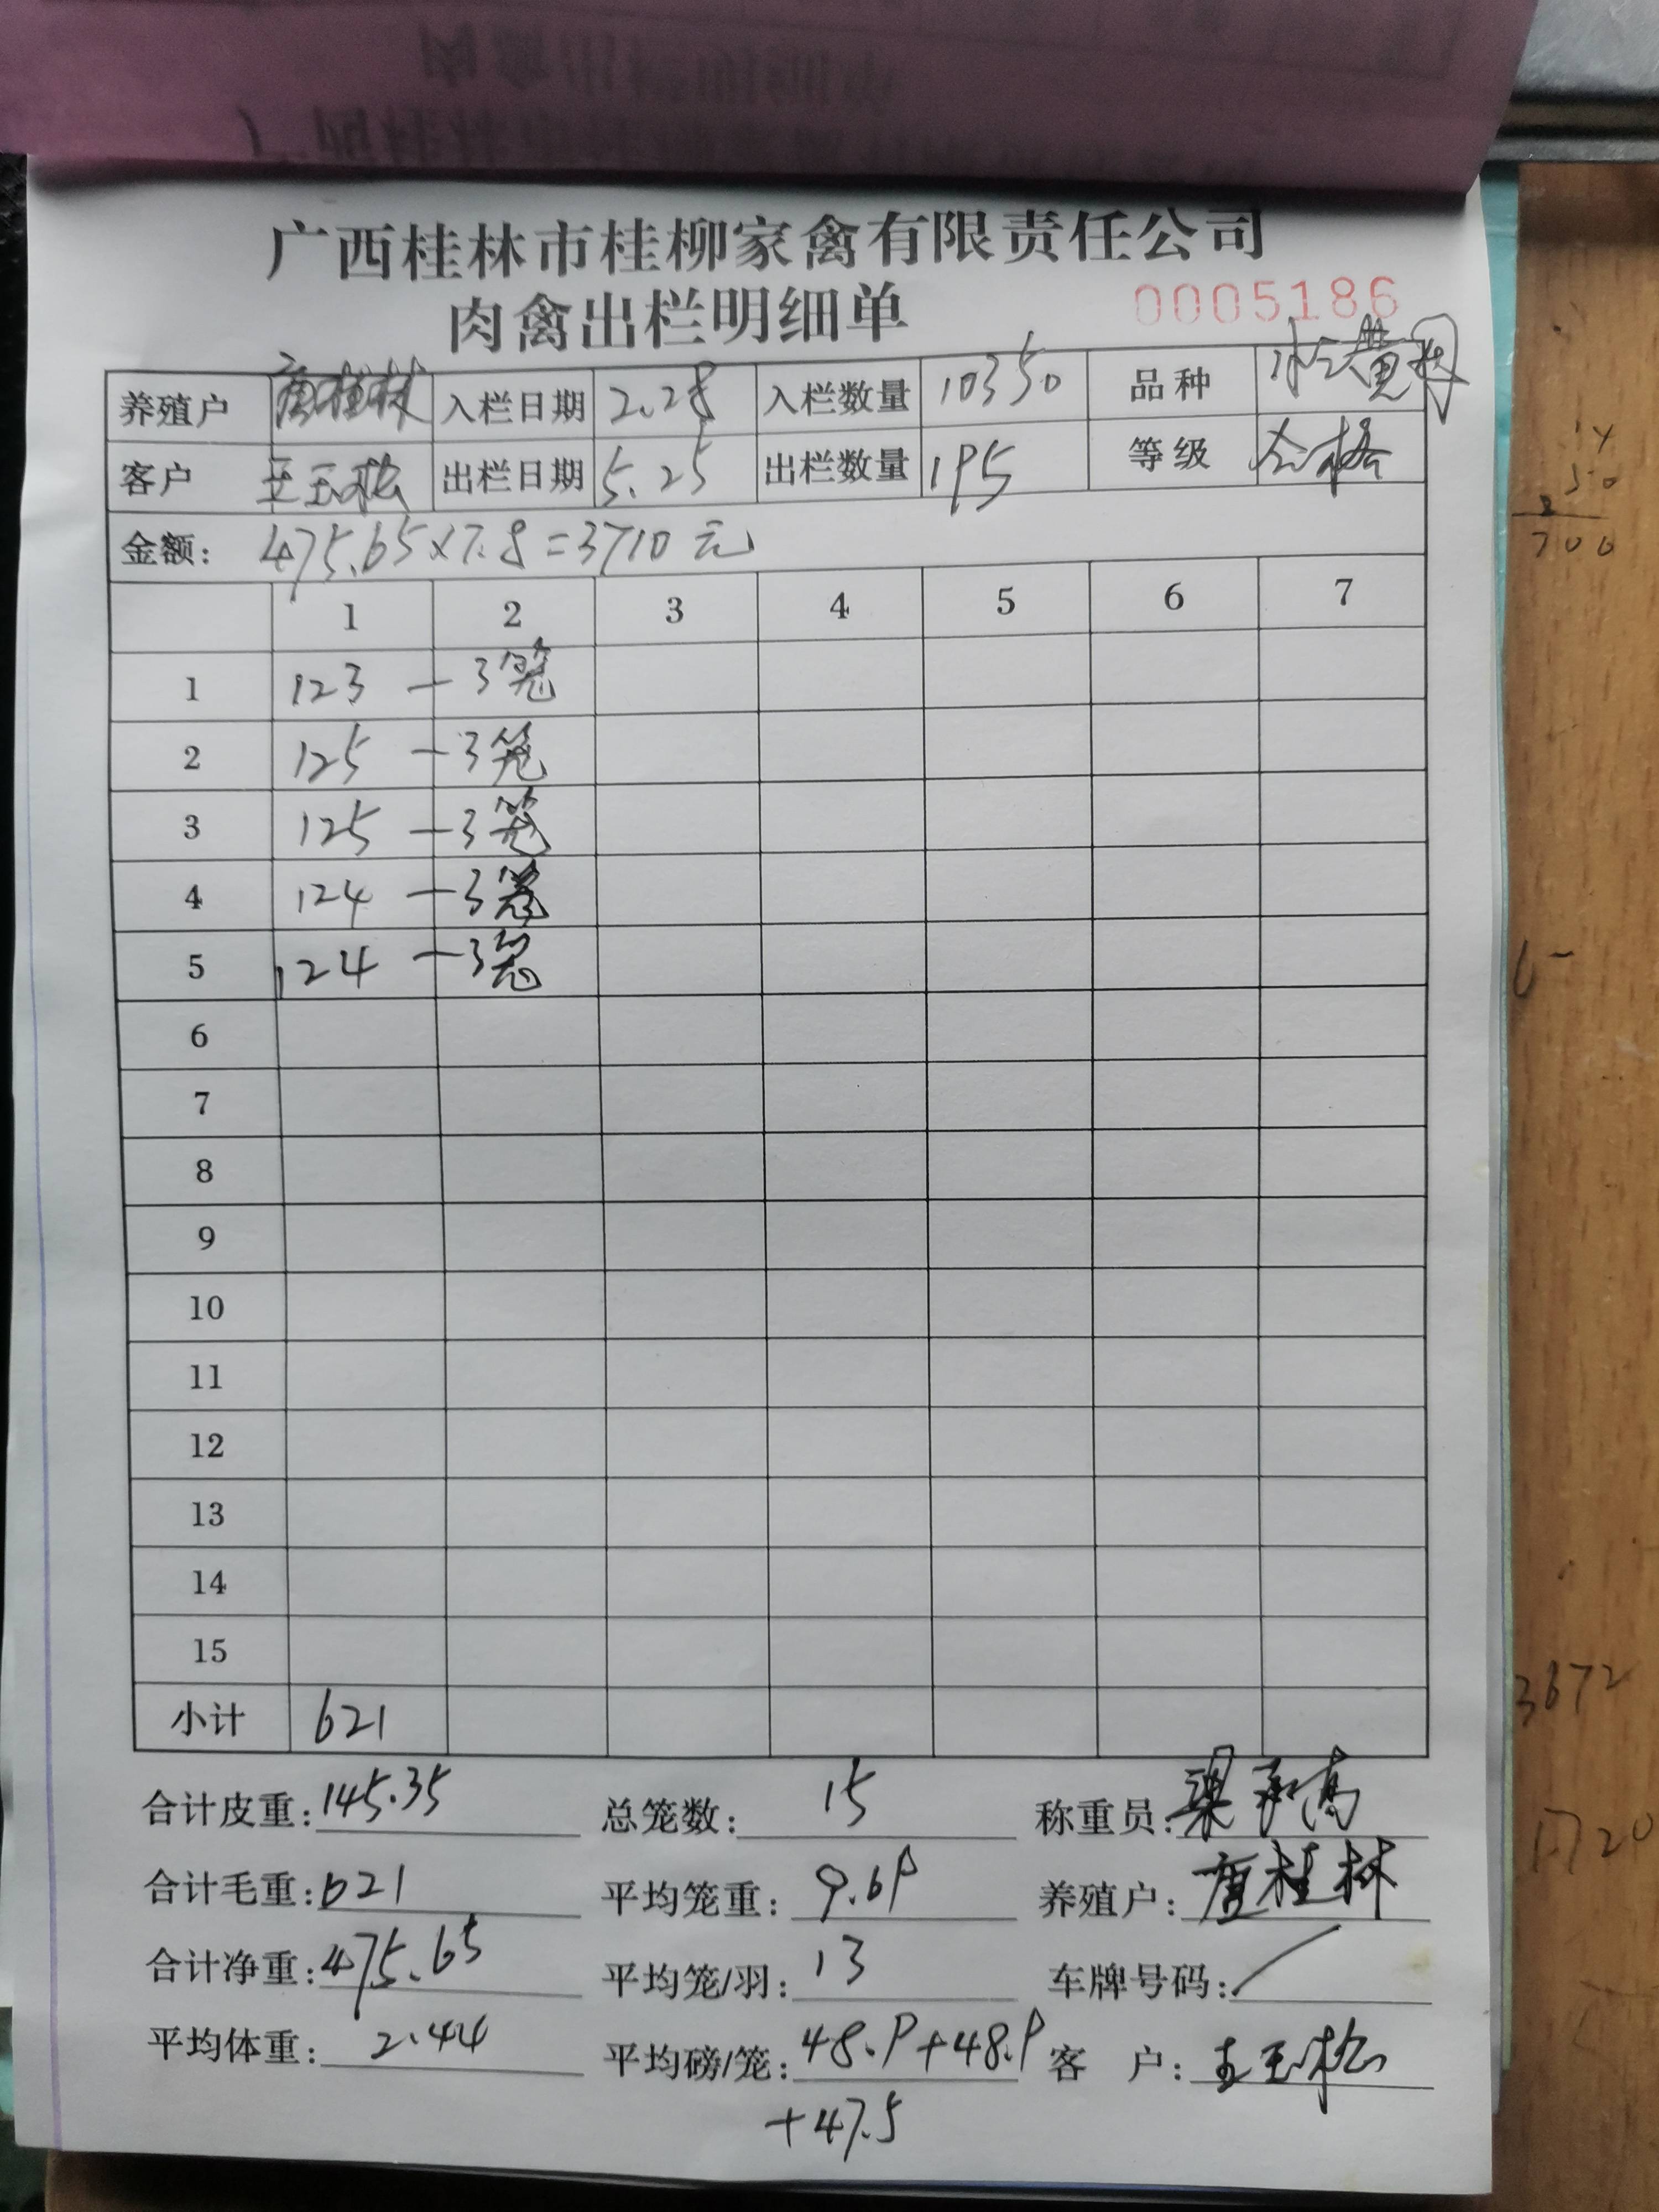 广西桂林市桂柳家禽有限责任公司
肉禽出栏明细单
0005186
养殖户 唐桂林 入栏日期 2.28 入栏数量 10350 品种
客户 王玉松 出栏日期 5.25 出栏数量 195 等级 合格
金额: 475.65×7.8=3710元
1 2 3 4 5 6 7
1 123 — 3笼
2 125 — 3笼
3 125 — 3笼
4 124 — 3笼
5 124 — 3笼
6
7
8
9
10
11
12
13
14
15
小计 621
合计皮重: 145.35 总笼数: 15 称重员:
合计毛重: 621 平均笼重: 9.69 养殖户: 唐桂林
合计净重: 475.65 平均笼/羽: 13 车牌号码: /
平均体重: 2.44 平均磅/笼: 48.9+48.9 客 户: 王玉松
+47.5
50
700
3672
1720